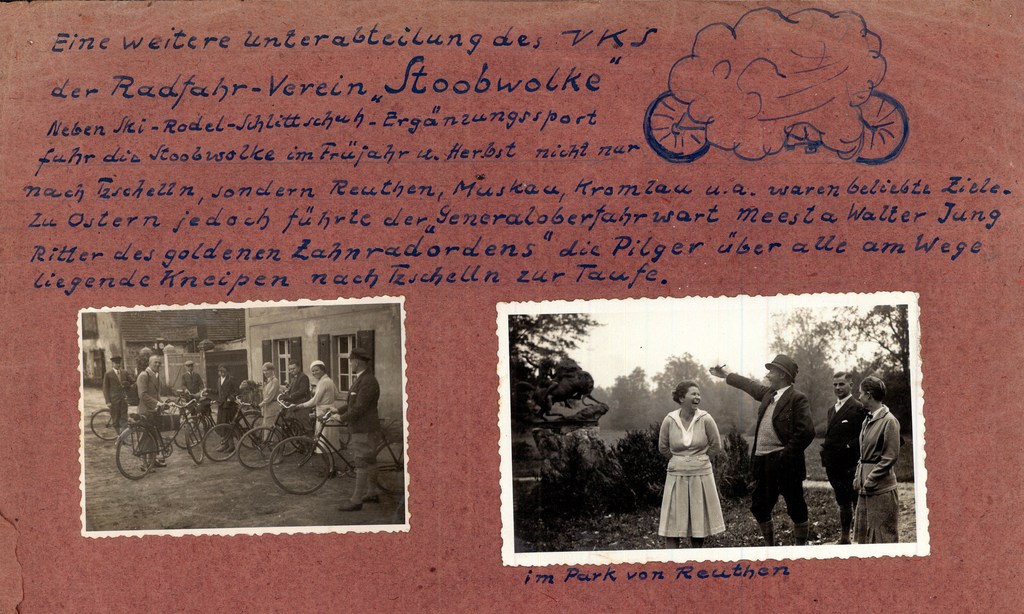 Eine weitere Unterabteilung des VKS
der Radfahr-Verein „Stoobwolke"
Neben Ski-Rodel-Schlittschuh-Ergänzungssport
fuhr die Stoobwolke im Früjahr u. Herbst nicht nur
nach Tzschelln, sondern Reuthen, Muskau, Kromlau u.a. waren beliebte Ziele.
Zu Ostern jedoch führte der Generaloberfahrwart Meesta Walter Jung
Ritter des goldenen Zahnrad„ordens" die Pilger über alle am Wege
liegende Kneipen nach Tzschelln zur Taufe.
im Park von Reuthen